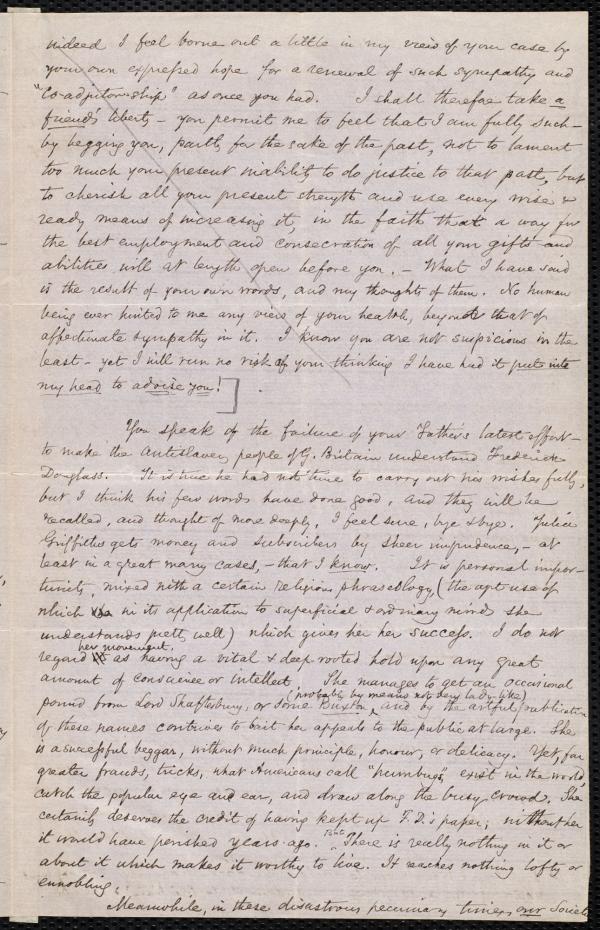 indeed I feel borne out a little in my view of your case by
your own expressed hope for a renewal of such sympathy and
"co-adjutorship" as once you had. I shall therefore take a
friend's liberty – you permit me to feel that I am fully such –
by begging you, partly for the sake of the past, not to lament
too much your present inability to do justice to that past, but
to cherish all your present strength and use every wise &
ready means of increasing it, in the faith that a way for
the best employment and consecration of all your gifts and
abilities will at length open before you. – What I have said
is the result of your own words, and my thoughts of them. No human
being ever hinted to me any views of your health, beyond that of
affectionate sympathy in it. I know you are not suspicious in the
least – yet I will run no risk of your thinking I have had it put into
my head to advise you!]
You speak of the failure of your Father's latest effort –
to make the Antislavery people of G. Britain understand Frederick
Douglass. It is true he had not time to carry out his wishes fully,
but I think his few words have done good, and they will be
recalled, and thought of more deeply, I feel sure, bye & bye. Julia
Griffiths gets money and subscribers by sheer impudence, – at
least in a great many cases, – that I know. It is personal impor-
tunity, mixed with a certain religious phraseology, (the apt use of
which in its application to superficial & ordinary minds she
understands prett well) which gives her her success. I do not
her movement.
regard as having a vital & deep rooted hold upon any great
amount of conscience or intellect. She manages to get an occasional
(probably by means not very lady-like)
pound from Lord Shaftesbury, or some Buxton, and by the artful publication
of these names contrives to bait her appeals to the public at large. She
is a successful beggar, without much principle, honour, or delicacy. Yet, far
greater frauds, tricks, what Americans call "humbugs", exist in the world,
catch the popular eye and ear, and draw along the busy crowd. She
certainly deserves the credit of having kept up F.D.'s paper; without her
it would have perished years ago. But There is really nothing in it or
about it which makes it worthy to live. It reaches nothing lofty or
ennobling.
Meanwhile, in these disastrous pecuniary times, our Societ